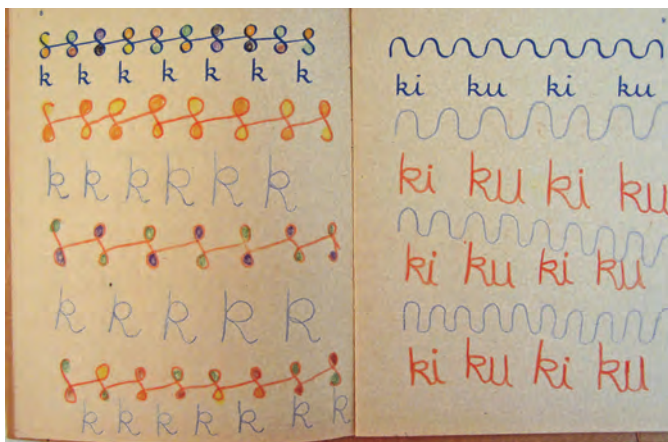 k k k k k k k
k k k k k k
k k k k k
k k k k k k k
ki ku ki ku
ki ku ki ku
ki ku ki ku
ki ku ki ku